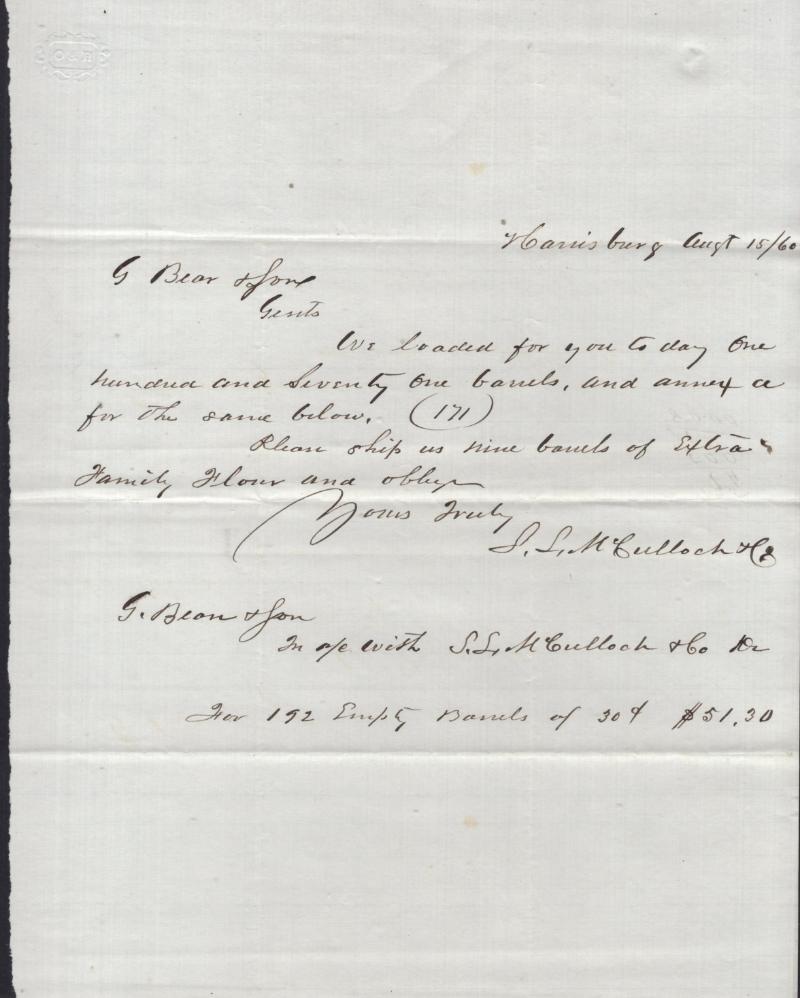 O & H
Harrisburg Augt 15/60
G Bear & Son
Gents
We loaded for you to day One
hundred and Seventy One barrels, and annex a
for the same below. (171)
Please ship us nine barrels of Extra
Family Flour and oblige
Yours Truly
S. L. McCulloch & Co
G. Bear & Son
In a/c with S. L. McCulloch & Co Dr
For 192 Empty Barrels of 30¢ $51.30